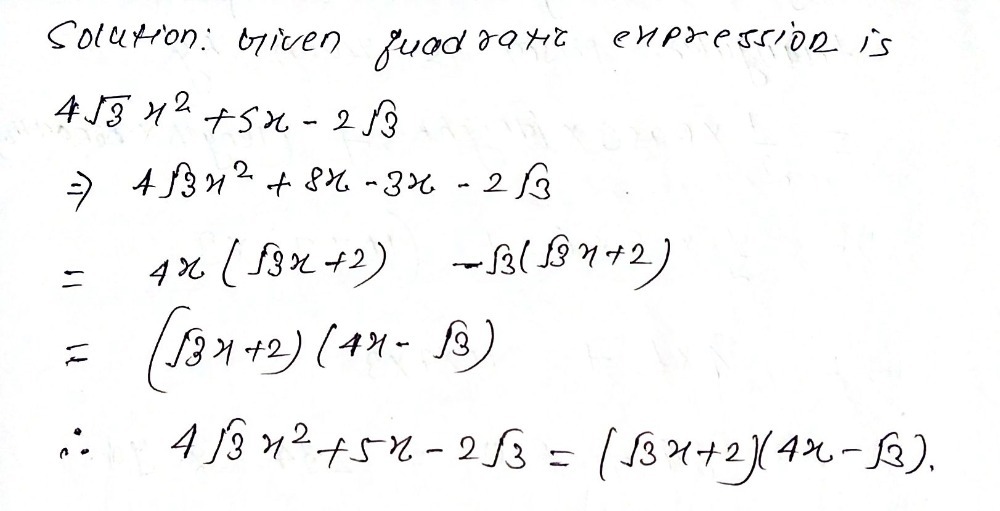 Solution: Given quadratic expression is
4√3 x² + 5x - 2√3
⇒ 4√3x² + 8x - 3x - 2√3
= 4x (√3x + 2) - √3(√3x + 2)
= (√3x + 2)(4x - √3)
∴ 4√3x² + 5x - 2√3 = (√3x + 2)(4x - √3).